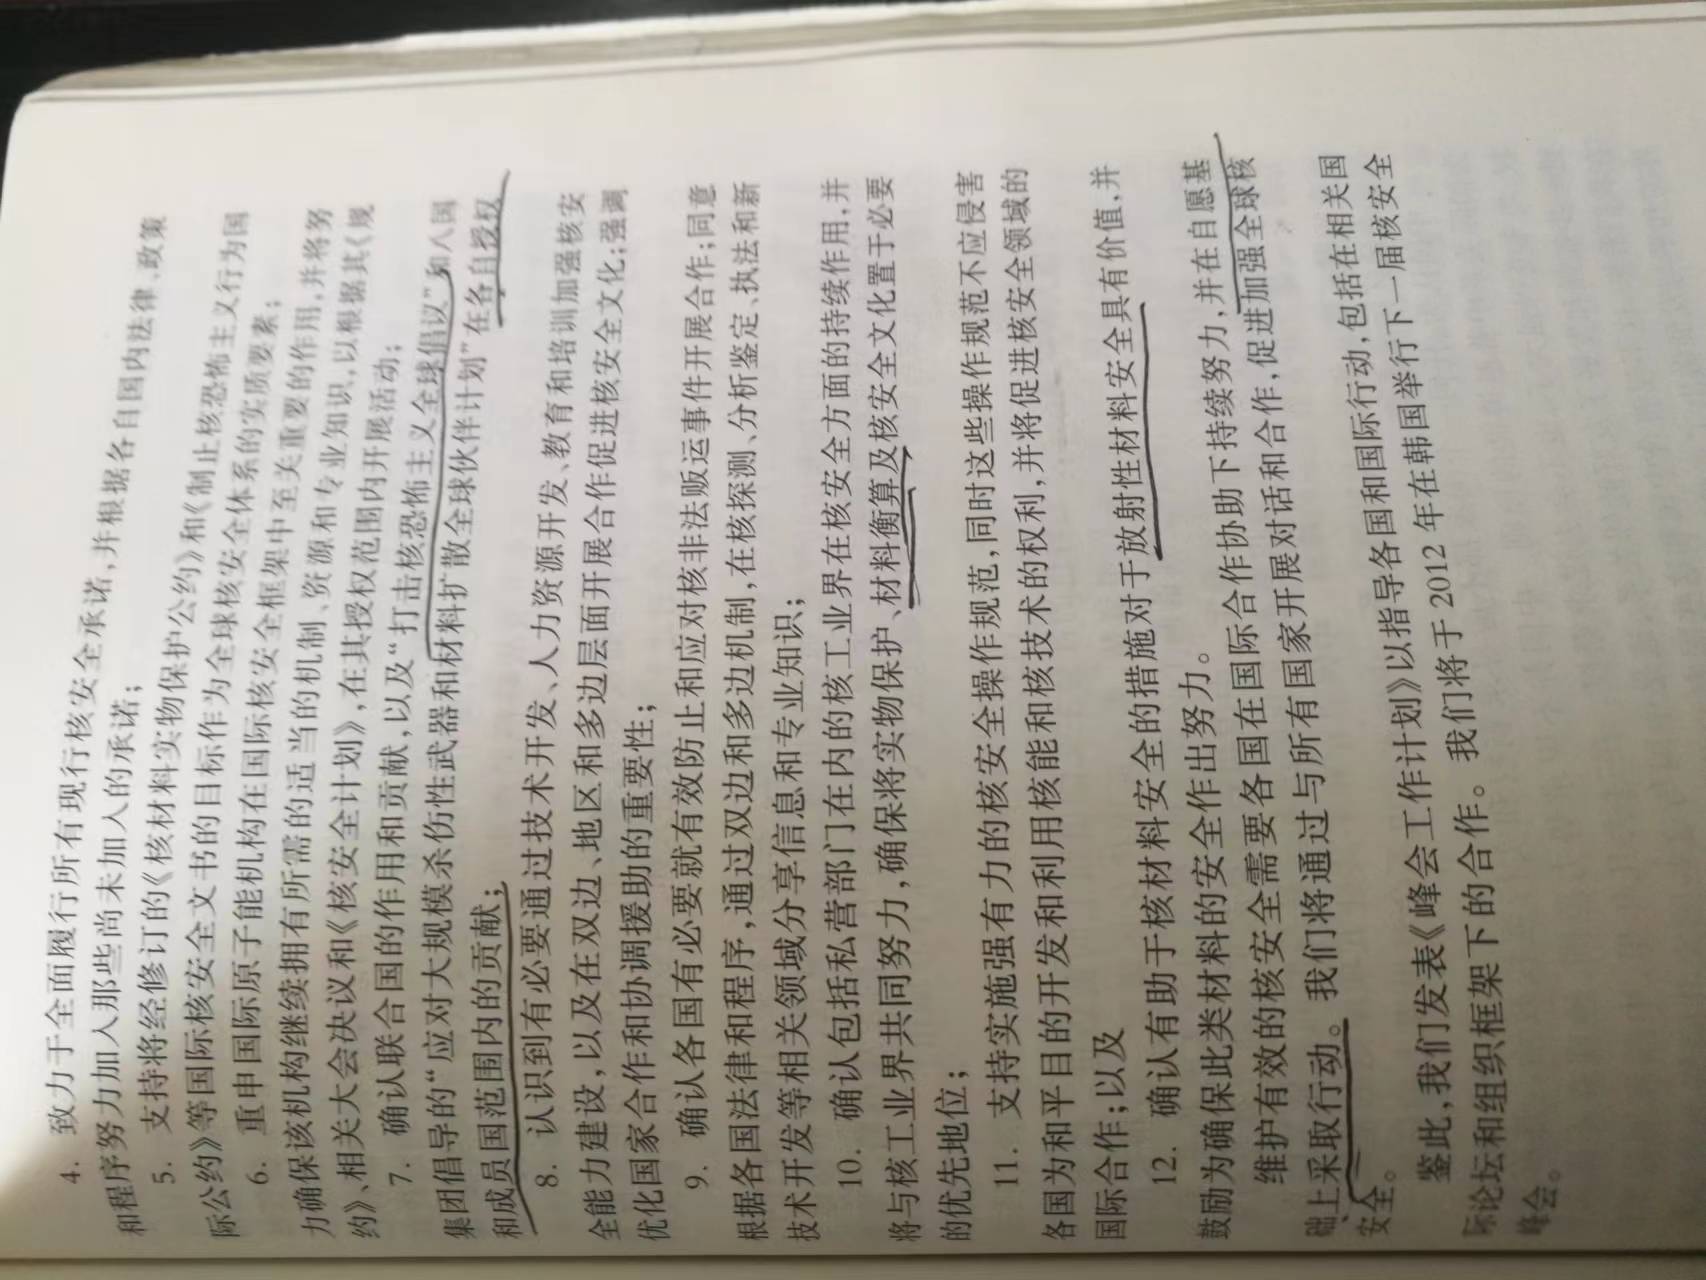 4. 致力于全面履行所有现行核安全承诺,并根据各自国内法律、政策
和程序努力加入那些尚未加入的承诺;
5. 支持将经修订的《核材料实物保护公约》和《制止核恐怖主义行为国
际公约》等国际核安全文书的目标作为全球核安全体系的实质要素;
6. 重申国际原子能机构在国际核安全框架中至关重要的作用,并将努
力确保该机构继续拥有所需的适当的机制、资源和专业知识,以根据其《规
约》、相关大会决议和《核安全计划》,在其授权范围内开展活动;
7. 确认联合国的作用和贡献,以及“打击核恐怖主义全球倡议”和八国
集团倡导的“应对大规模杀伤性武器和材料扩散全球伙伴计划”在各自授权
和成员国范围内的贡献;
8. 认识到有必要通过技术开发、人力资源开发、教育和培训加强核安
全能力建设,以及在双边、地区和多边层面开展合作促进核安全文化;强调
优化国家合作和协调援助的重要性;
9. 确认各国有必要就有效防止和应对核非法贩运事件开展合作;同意
根据各国法律和程序,通过双边和多边机制,在核探测、分析鉴定、执法和新
技术开发等相关领域分享信息和专业知识;
10. 确认包括私营部门在内的核工业界在核安全方面的持续作用,并
将与核工业界共同努力,确保将实物保护、材料衡算及核安全文化置于必要
的优先地位;
11. 支持实施强有力的核安全操作规范,同时这些操作规范不应侵害
各国为和平目的开发和利用核能和核技术的权利,并将促进核安全领域的
国际合作;以及
12. 确认有助于核材料安全的措施对于放射性材料安全具有价值,并
鼓励为确保此类材料的安全作出努力。
维护有效的核安全需要各国在国际合作协助下持续努力,并在自愿基
础上采取行动。我们将通过与所有国家开展对话和合作,促进加强全球核
安全。
鉴此,我们发表《峰会工作计划》以指导各国和国际行动,包括在相关国
际论坛和组织框架下的合作。我们将于2012年在韩国举行下一届核安全
峰会。